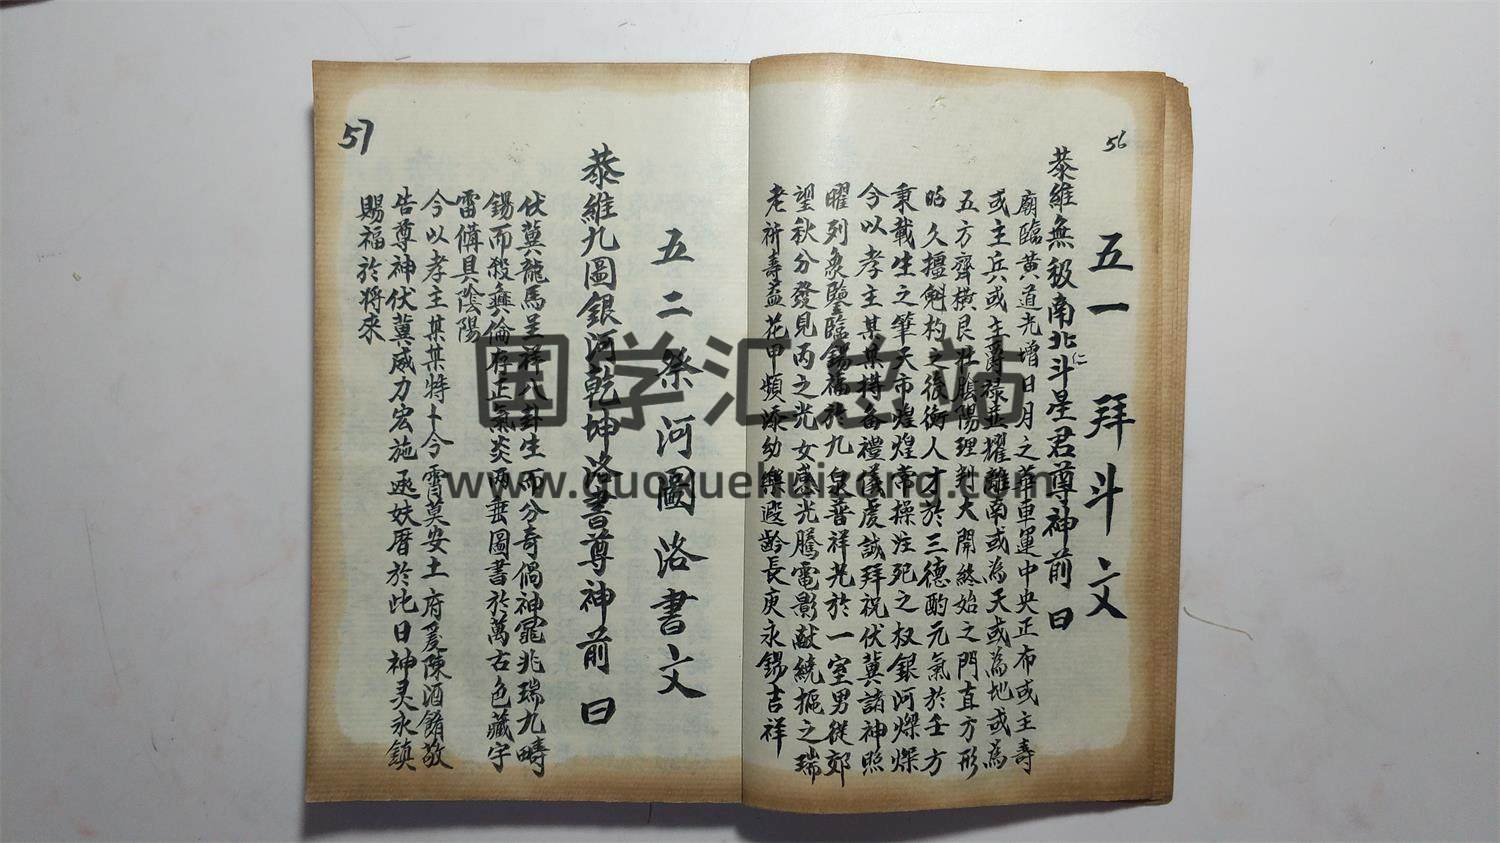 56
五一 拜斗文
恭維無極南北斗星君尊神前曰
仁
廟臨黄道光增日月之華車運中央正布或主壽
或主兵或主爵禄並耀離南或為天或為地或為
五方齊横艮壮陰陽理判大開終始之門直方形
昭久擅斛杓之後衡人才於三德酌元氣於壬方
秉載生之筆天市煌煌常操注死之权銀河燦燦
今以孝主某某撙备禮儀虔誠拜祝伏冀諸神照
曜列象鑒臨錫福於九泉普祥光於一室男從郊
望秋分發見丙之光女感光騰電影献繞樞之瑞
老祈壽益花甲頻添幼樂遐齡長庚永錫吉祥
57
五二祭河圖洛書文
恭維九圖銀河乾坤洛書尊神前曰
伏冀龍馬呈祥八卦生而分奇偶神龜兆瑞九疇
錫而殺彝倫存正氣炎两垂圖書於萬古色藏宇
雷備具陰陽
今以孝主某某特卜今霄莫安土府爰陳酒餚敬
告尊神伏冀威力宏施逐妖曆於此日神灵永鎮
賜福於将来
国学汇总站
www.guoxuehuizong.com